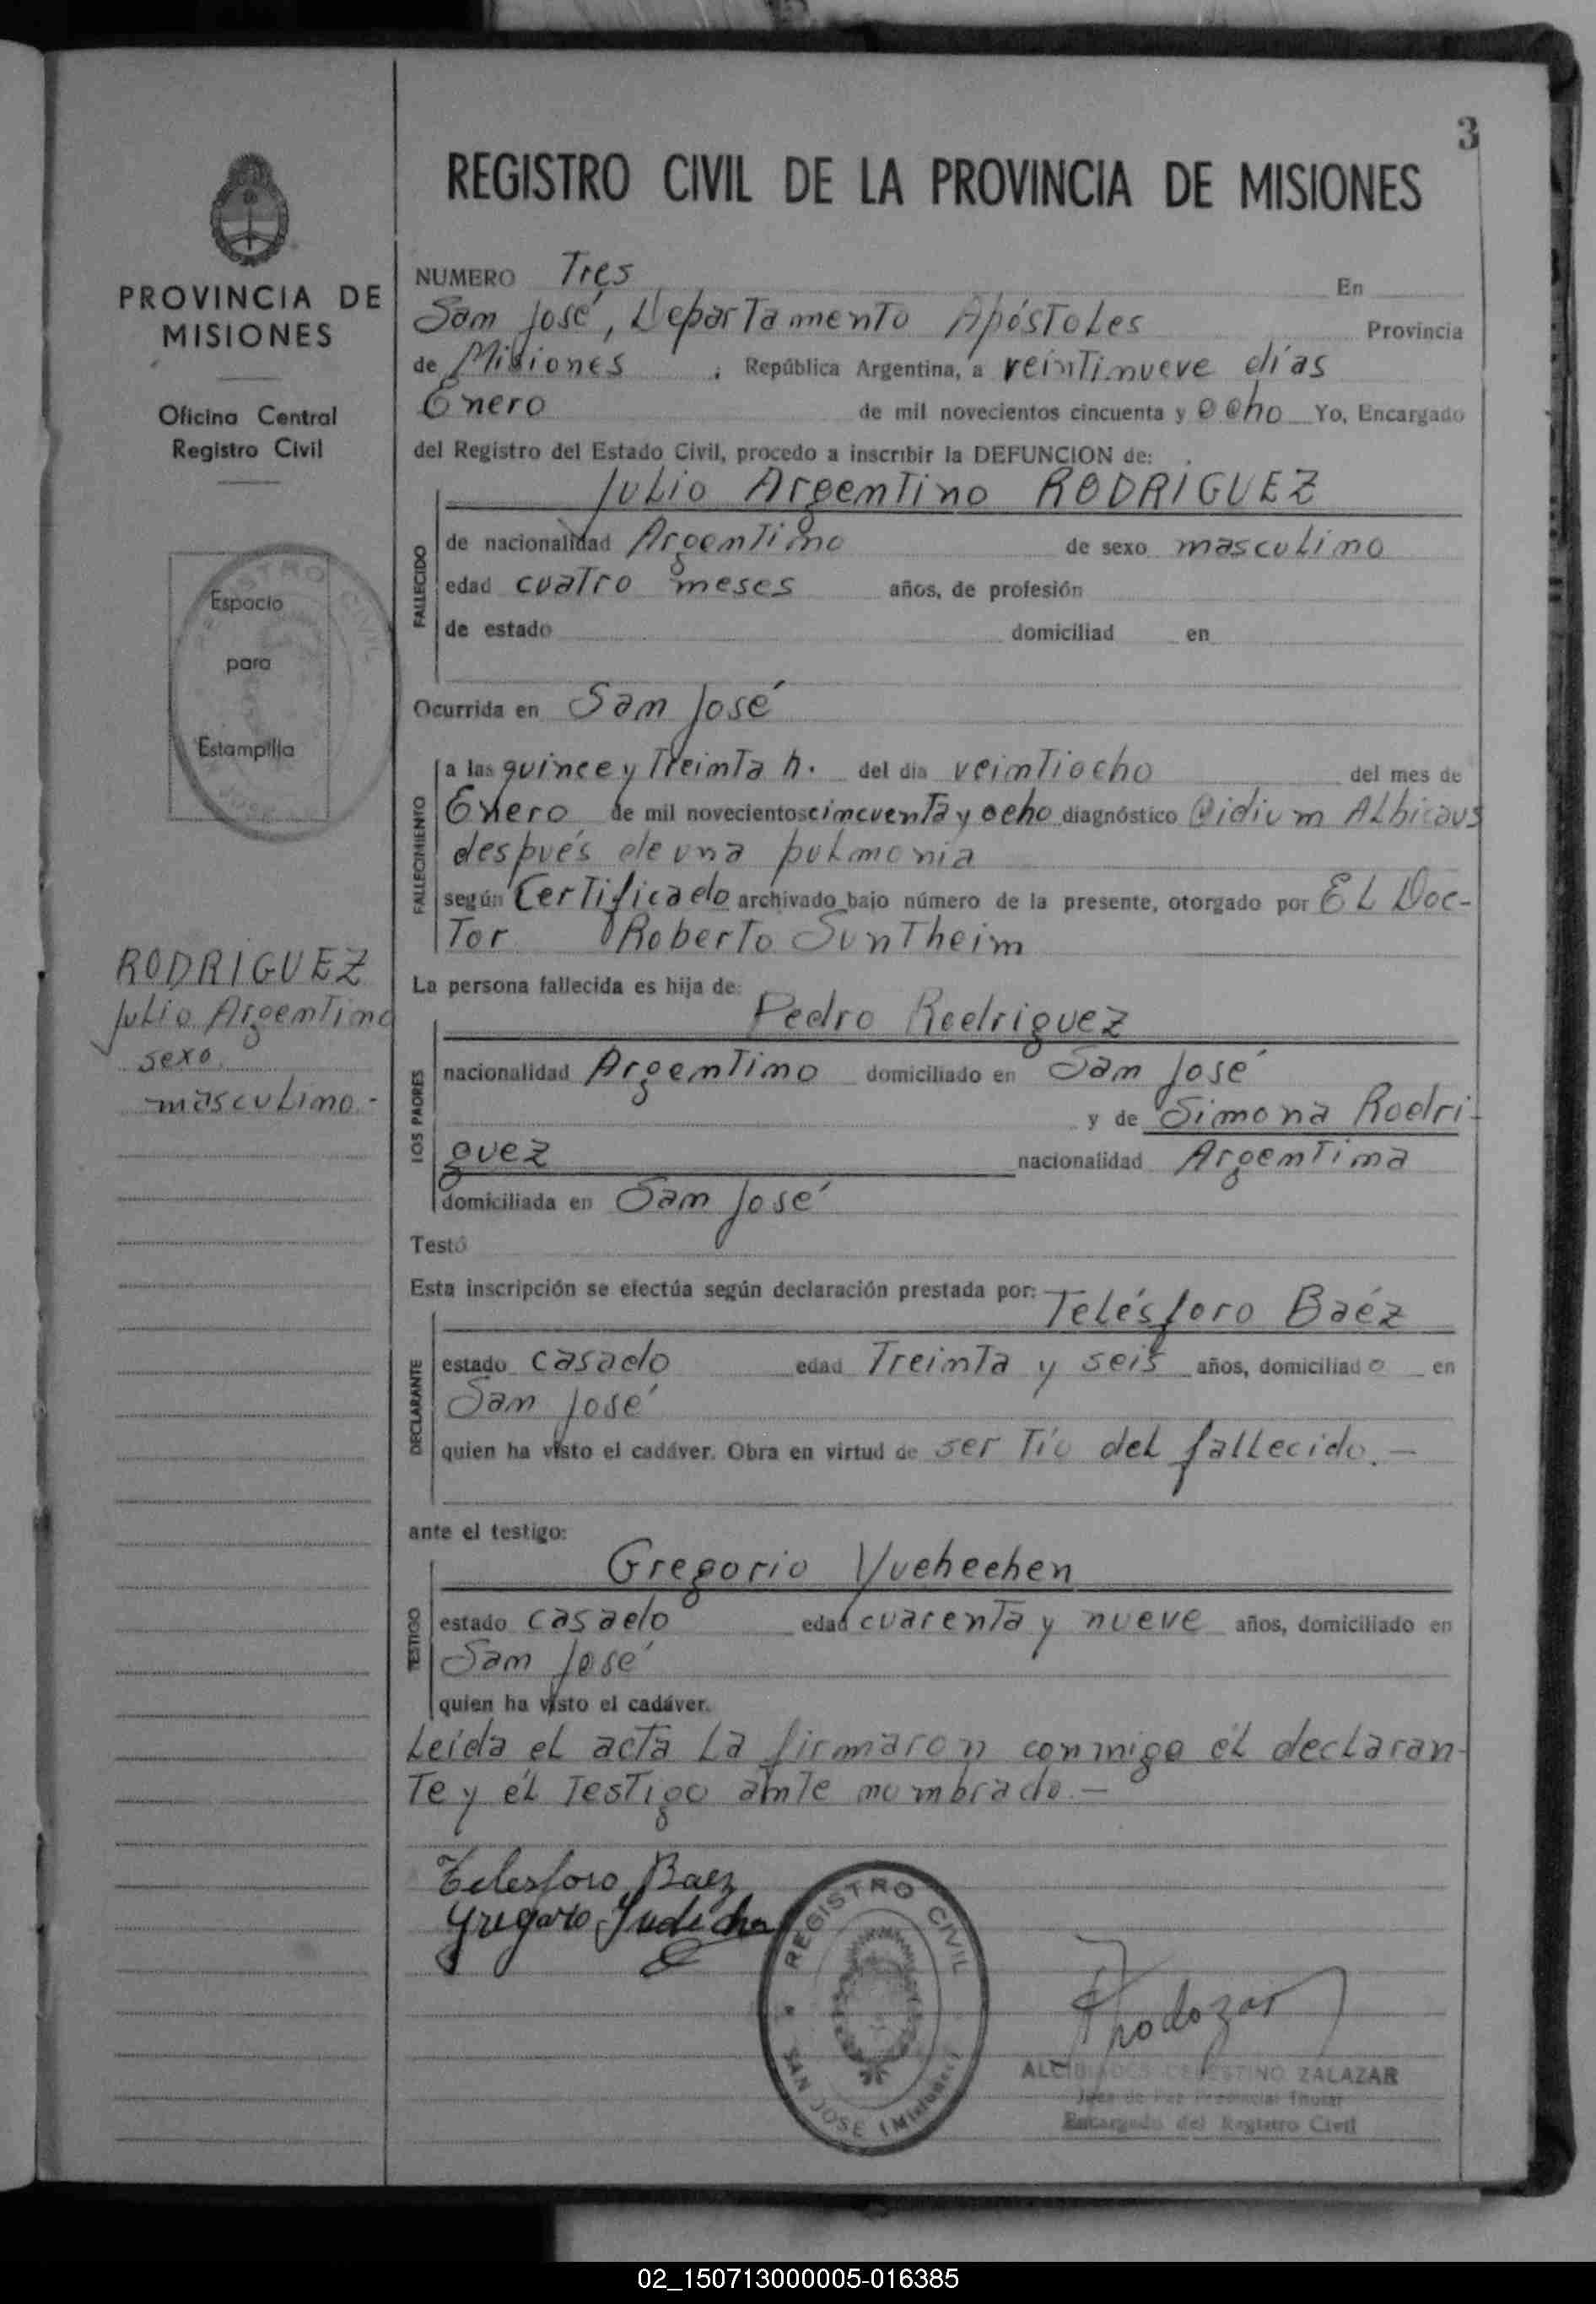 3
REGISTRO CIVIL DE LA PROVINCIA DE MISIONES
PROVINCIA DE
MISIONES
Oficina Central
Registro Civil
Espacio
para
Estampilla
RODRIGUEZ
Julio Argentino
sexo
masculino.-
NUMERO Tres En
San José, Departamento Apóstoles Provincia
de Misiones, República Argentina, a veintinueve días
Enero de mil novecientos cincuenta y ocho Yo, Encargado
del Registro del Estado Civil, procedo a inscribir la DEFUNCION de:
Julio Argentino RODRIGUEZ
FALLECIDO
de nacionalidad Argentino de sexo masculino
edad cuatro meses años, de profesión
de estado domiciliad en
Ocurrida en San José
FALLECIMIENTO
a las quince y Treinta h. del dia veintiocho del mes de
Enero de mil novecientos cincuenta y ocho diagnóstico Oidium Albicaus
después de una pulmonia
según Certificado archivado bajo número de la presente, otorgado por EL Doc-
Tor Roberto Suntheim
La persona fallecida es hija de:
Pedro Rodriguez
LOS PADRES
nacionalidad Argentino domiciliado en San José
y de Simona Rodri-
guez nacionalidad Argentina
domiciliada en San José
Testó
Esta inscripción se efectúa según declaración prestada por:
Telésforo Baéz
DECLARANTE
estado casado edad Treinta y seis años, domiciliado en
San José
quien ha visto el cadáver. Obra en virtud de ser Tío del fallecido.-
ante el testigo:
Gregorio
TESTIGO
estado casado edad cuarenta y nueve años, domiciliado en
San José
quien ha visto el cadáver.
Leída el acta la firmaron conmigo él declaran-
Te y él Testigo ante nombrado.-
Telesforo Baez
Gregorio
REGISTRO CIVIL
SAN JOSE (Misiones)
ALCIBIADES CELESTINO ZALAZAR
Juez de Paz Provincial Titular
Encargado del Registro Civil
02_150713000005-016385